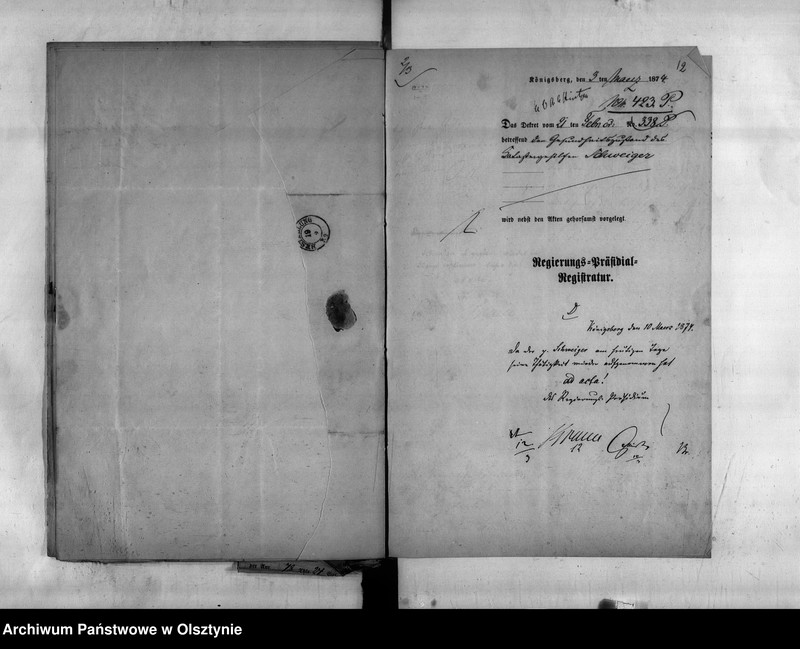 12
Königsberg, den 9 ten Maerz 1874.
No 423. P.
Das Dekret vom 21 ten Febr. cr. Nr. 338 P.
betreffend den Gesundheitszustand des
Katastergehilfen Schweiger
wird nebst den Akten gehorsamst vorgelegt
Regierungs-Präsidial-
Registratur.
Königsberg den 10 Maerz 1874.
Da der p. Schweiger am heutigen Tage
seine Thätigkeit wieder aufgenommen hat
ad acta!
Das Regierungs-Präsidium
12
3
Archiwum Państwowe w Olsztynie